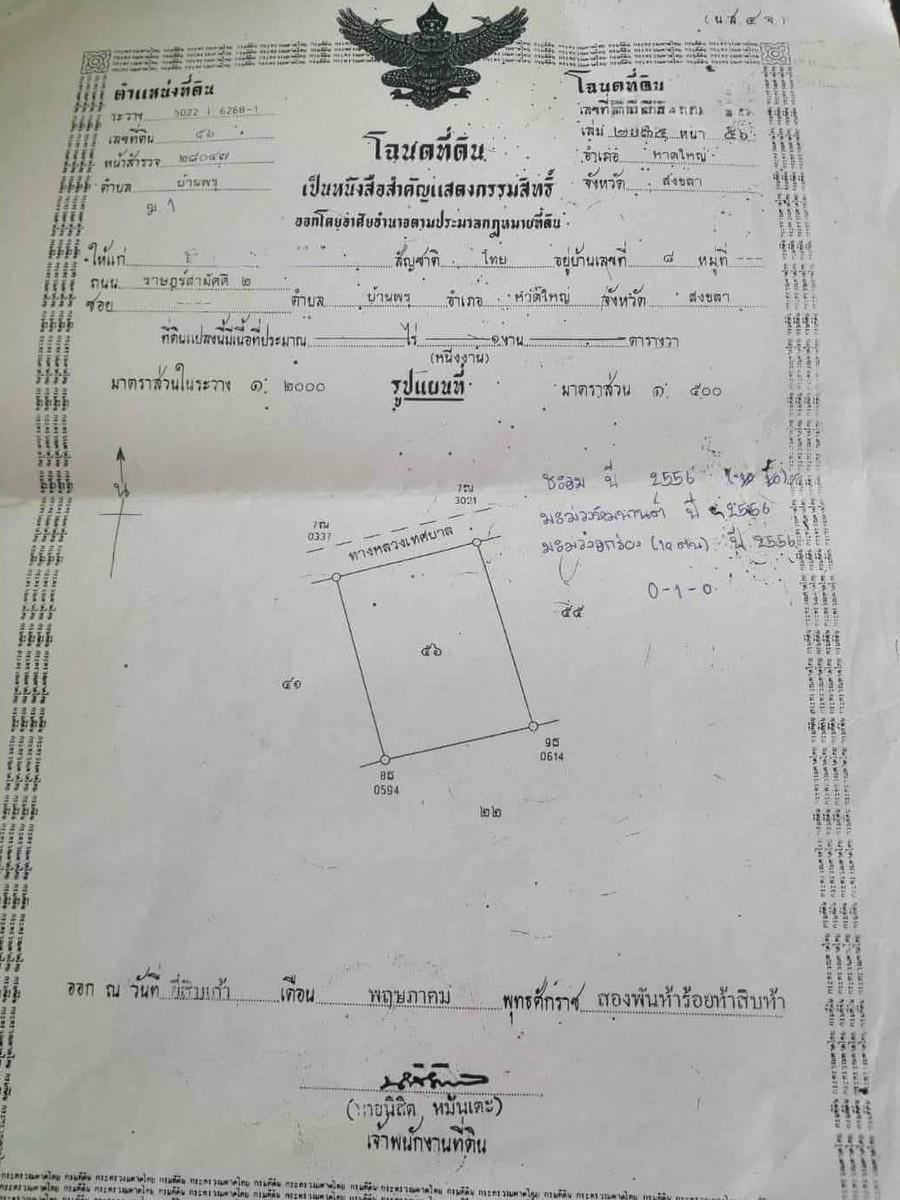 (น.ส.๔ จ)
ตำแหน่งที่ดิน
ระวาง 5022 I 6268-1
เลขที่ดิน ๕๖
หน้าสำรวจ ๒๘๐๔๗
ตำบล บ้านพรุ
ม.1
โฉนดที่ดิน
เลขที่
เล่ม หน้า ๕๖
อำเภอ หาดใหญ่
จังหวัด สงขลา
โฉนดที่ดิน
เป็นหนังสือสำคัญแสดงกรรมสิทธิ์
ออกโดยอาศัยอำนาจตามประมวลกฎหมายที่ดิน
ให้แก่ สัญชาติ ไทย อยู่บ้านเลขที่ ๘ หมู่ที่ ---
ถนน ราษฎร์สามัคคี ๒
ซอย ---- ตำบล บ้านพรุ อำเภอ หาดใหญ่ จังหวัด สงขลา
ที่ดินแปลงนี้มีเนื้อที่ประมาณ ไร่ ๑ งาน ตารางวา
(หนึ่งงาน)
มาตราส่วนในระวาง ๑: ๒๐๐๐ รูปแผนที่ มาตราส่วน ๑: ๕๐๐
น
ชะอม ปี 2556
ปี 2556
มะม่วงอกร่อง ปี 2556
0-1-0
7ณ
3021
7ณ
0337
ทางหลวงเทศบาล
๕๕
๕๖
๔๑
9ธ
0614
8ธ
0594
๒๒
ออก ณ วันที่ ยี่สิบเก้า เดือน พฤษภาคม พุทธศักราช สองพันห้าร้อยห้าสิบห้า
(นายนิสิต หมันเตะ)
เจ้าพนักงานที่ดิน
กรมที่ดิน กระทรวงมหาดไทย